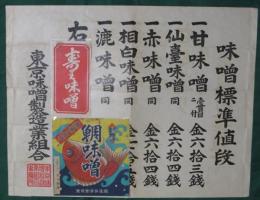 味噌標準値段
一甘味噌 二壹貫目付 金六拾三錢
一仙臺味噌 同 金六拾四錢
一赤味噌 同 金六拾四錢
一相白味噌 同 金六拾
一漉味噌 同
右
東京味噌製造業組合
壽味噌
鯛味噌